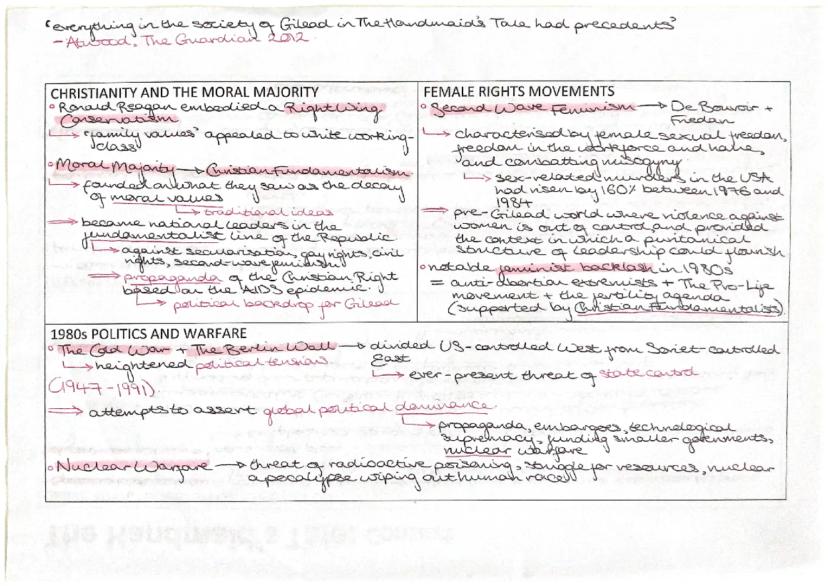 'everything in the society of Gilead in The Handmaid's Tale had precedents'
- Atwood, The Guardian 2012.
CHRISTIANITY AND THE MORAL MAJORITY
Ronald Reagan embodied a Right Wing
Conservatism
'family values' appealed to white working-
class
Moral Majority → Christian Fundamentalism
founded on what they saw as the decay
of moral values
traditional ideas
⇒ became national leaders in the
fundamentalist line of the Republic
against secularisation, gay rights, civil
rights, second-wave feminism
⇒ propaganda of the Christian Right
based on the AIDS epidemic.
political backdrop for Gilead
FEMALE RIGHTS MOVEMENTS
Second Wave Feminism → De Bouvoir +
Friedan
characterised by female sexual freedom,
freedom in the workforce and home,
and combatting misogyny.
sex-related murders in the USA
had risen by 160% between 1976 and
1984
⇒ pre-Gilead world where violence against
women is out of control and provided
the context in which a puritanical
structure of leadership could flourish
notable feminist backlash in 1980s
= anti-abortion extremists + The Pro-Life
movement + the fertility agenda
(supported by Christian Fundamentalists).
1980s POLITICS AND WARFARE
The Cold War + The Berlin Wall → divided US-controlled West from Soviet-controlled
East
heightened political tensions
ever-present threat of state control
(1947-1991)
⇒ attempts to assert global political dominance
propaganda, embargoes, technological
supremacy, funding smaller governments,
nuclear warfare
Nuclear Warfare → threat of radioactive poisoning, struggle for resources, nuclear
apocalypse wiping out human race
The Handmaid's Tale: Context